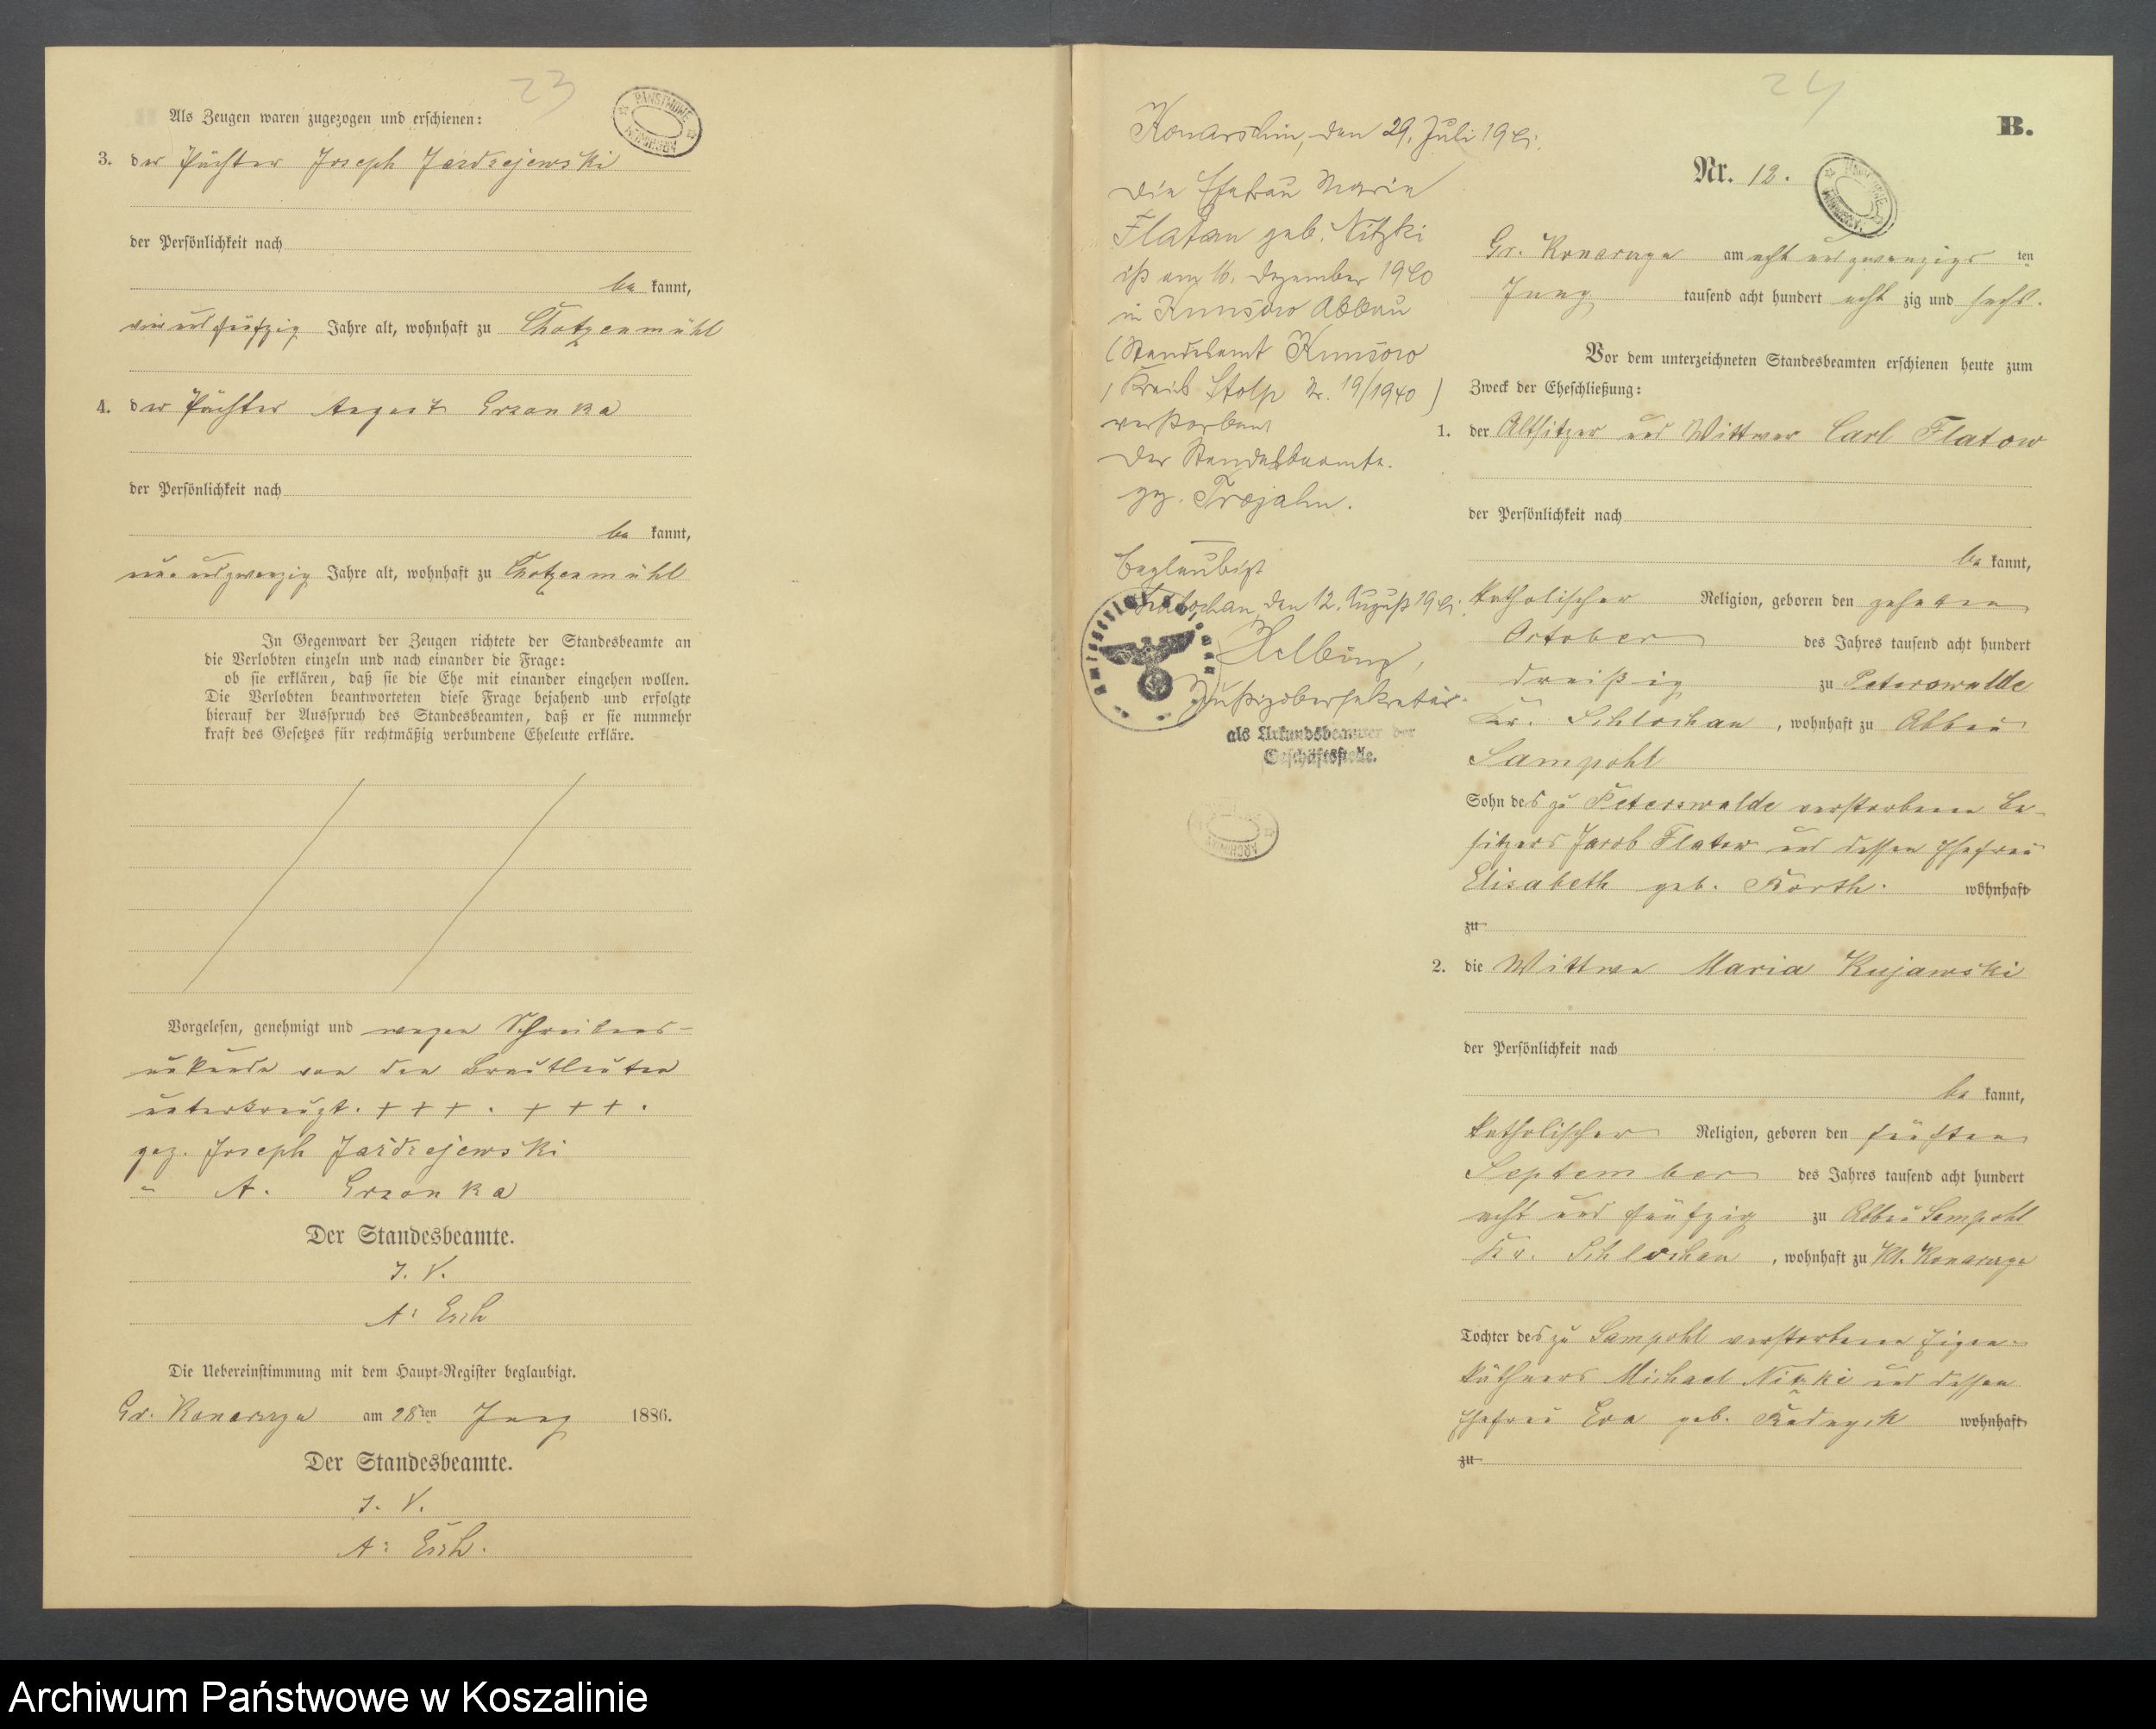 23
Als Zeugen waren zugezogen und erschienen:
3. der Pächter Joseph Jazdzejewski
der Persönlichkeit nach
be kannt,
vier und fünfzig Jahre alt, wohnhaft zu Chotzenmühl
4. der Pächter August Grzonka
der Persönlichkeit nach
be kannt,
neun und zwanzig Jahre alt, wohnhaft zu Chotzenmühl
In Gegenwart der Zeugen richtete der Standesbeamte an
die Verlobten einzeln und nach einander die Frage:
ob sie erklären, daß sie die Ehe mit einander eingehen wollen.
Die Verlobten beantworteten diese Frage bejahend und erfolgte
hierauf der Ausspruch des Standesbeamten, daß er sie nunmehr
kraft des Gesetzes für rechtmäßig verbundene Eheleute erkläre.
Vorgelesen, genehmigt und wegen Schreibens-
unkunde von den Brautleuten
unterkreuzt. + + + . + + + .
gez. Joseph Jazdzejewski
" A. Grzonka
Der Standesbeamte.
I. V.
A: Esch
Die Uebereinstimmung mit dem Haupt-Register beglaubigt.
Gr. Konarzyn am 28ten Juny 1886.
Der Standesbeamte.
I. V.
A: Esch.
24
B.
Konarschin, den 29. Juli 1941.
Die Ehefrau Maria
Flatau geb. Nitzki
ist am 16. Dezember 1940
in Kunsow Abbau
(Standesamt Kunsow
Kreis Stolp Nr. 19/1940)
verstorben
Der Standesbeamte.
gez. Trojahn.
Beglaubigt
Schlochau, den 12. August 1941.
Helbing,
Justizobersekretär
als Urkundsbeamter der
Geschäftsstelle.
Nr. 12.
Gr. Konarzyn am acht und zwanzigs ten
Juny tausend acht hundert acht zig und sechs.
Vor dem unterzeichneten Standesbeamten erschienen heute zum
Zweck der Eheschließung:
1. der Altsitzer und Wittwer Carl Flatow
der Persönlichkeit nach
be kannt,
katholischer Religion, geboren den zehnten
October des Jahres tausend acht hundert
dreißig zu Peterswalde
Kr. Schlochau, wohnhaft zu Abbau
Sampohl
Sohn des zu Peterswalde verstorbenen Be-
sitzers Jacob Flatow und dessen Ehefrau
Elisabeth geb. Korth. wohnhaft
zu
2. die Wittwe Maria Kujawski
der Persönlichkeit nach
be kannt,
katholischer Religion, geboren den fünften
September des Jahres tausend acht hundert
acht und fünfzig zu Abbau Sampohl
Kr. Schlochau, wohnhaft zu Kl. Konarzyn
Tochter des zu Sampohl verstorbenen Eigen-
käthners Michael Nitzki und dessen
Ehefrau Eva geb. wohnhaft
zu
Archiwum Państwowe w Koszalinie